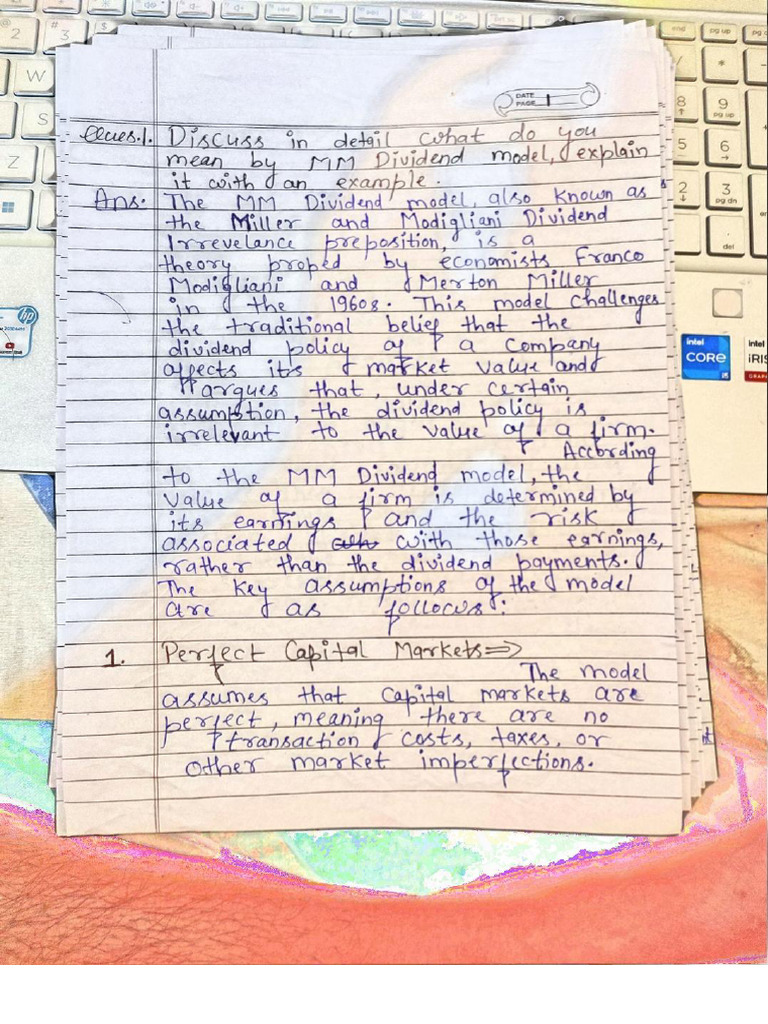 DATE
PAGE 1
Ques.1. Discuss in detail what do you
mean by MM Dividend model, explain
it with an example.
Ans. The MM Dividend model, also known as
the Miller and Modigliani Dividend
Irrevelance preposition, is a
theory proped by economists Franco
Modigliani and Merton Miller
in the 1960s. This model challenges
the traditional belief that the
dividend policy of a company
affects its market value and
argues that, under certain
assumption, the dividend policy is
irrelevant to the value of a firm.
According
to the MM Dividend model, the
value of a firm is determined by
its earnings and the risk
associated with those earnings,
rather than the dividend payments.
The key assumptions of the model
are as follows:
1. Perfect Capital Markets⇒
The model
assumes that capital markets are
perfect, meaning there are no
transaction costs, taxes, or
other market imperfections.
2
#
3
W
S
Z
hp
end
pg up
*
8
9
pg up
5
6
2
3
pg dn
del
intel
CORE
i5
intel
iRIS